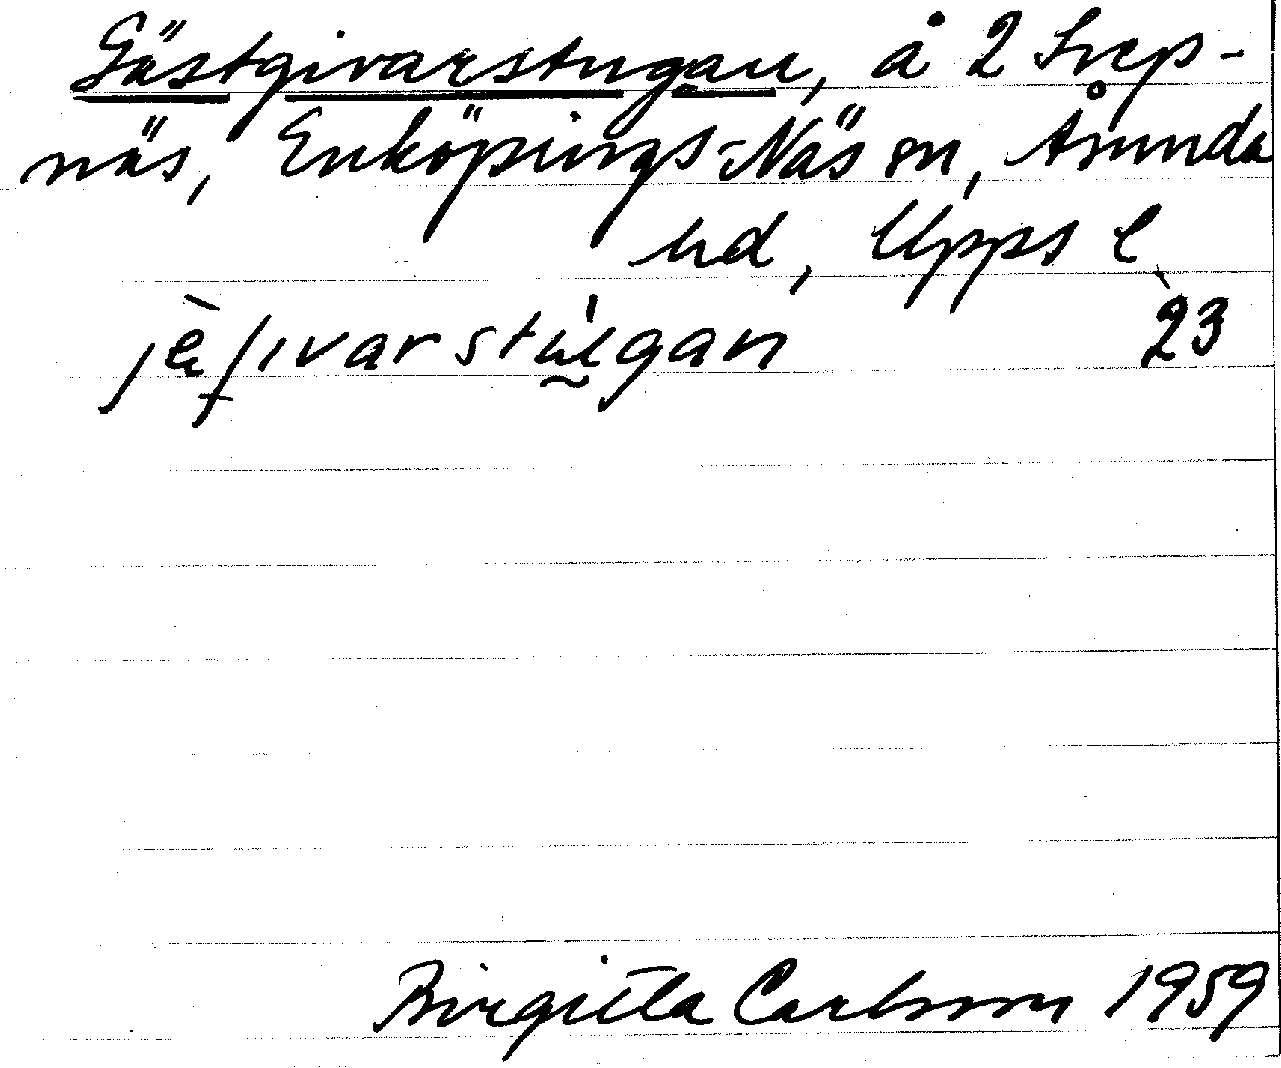 Gästgivarstugan, å 2 Svep-
näs, Enköpings-Näs sn, Åsunda
hd, Upps l
23
Birgitta Carlsson 1959